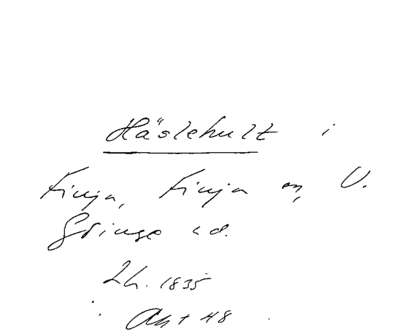 Häslehult i
Finja, Finja sn, V.
Göinge hd.
Lh. 1835
Akt 48